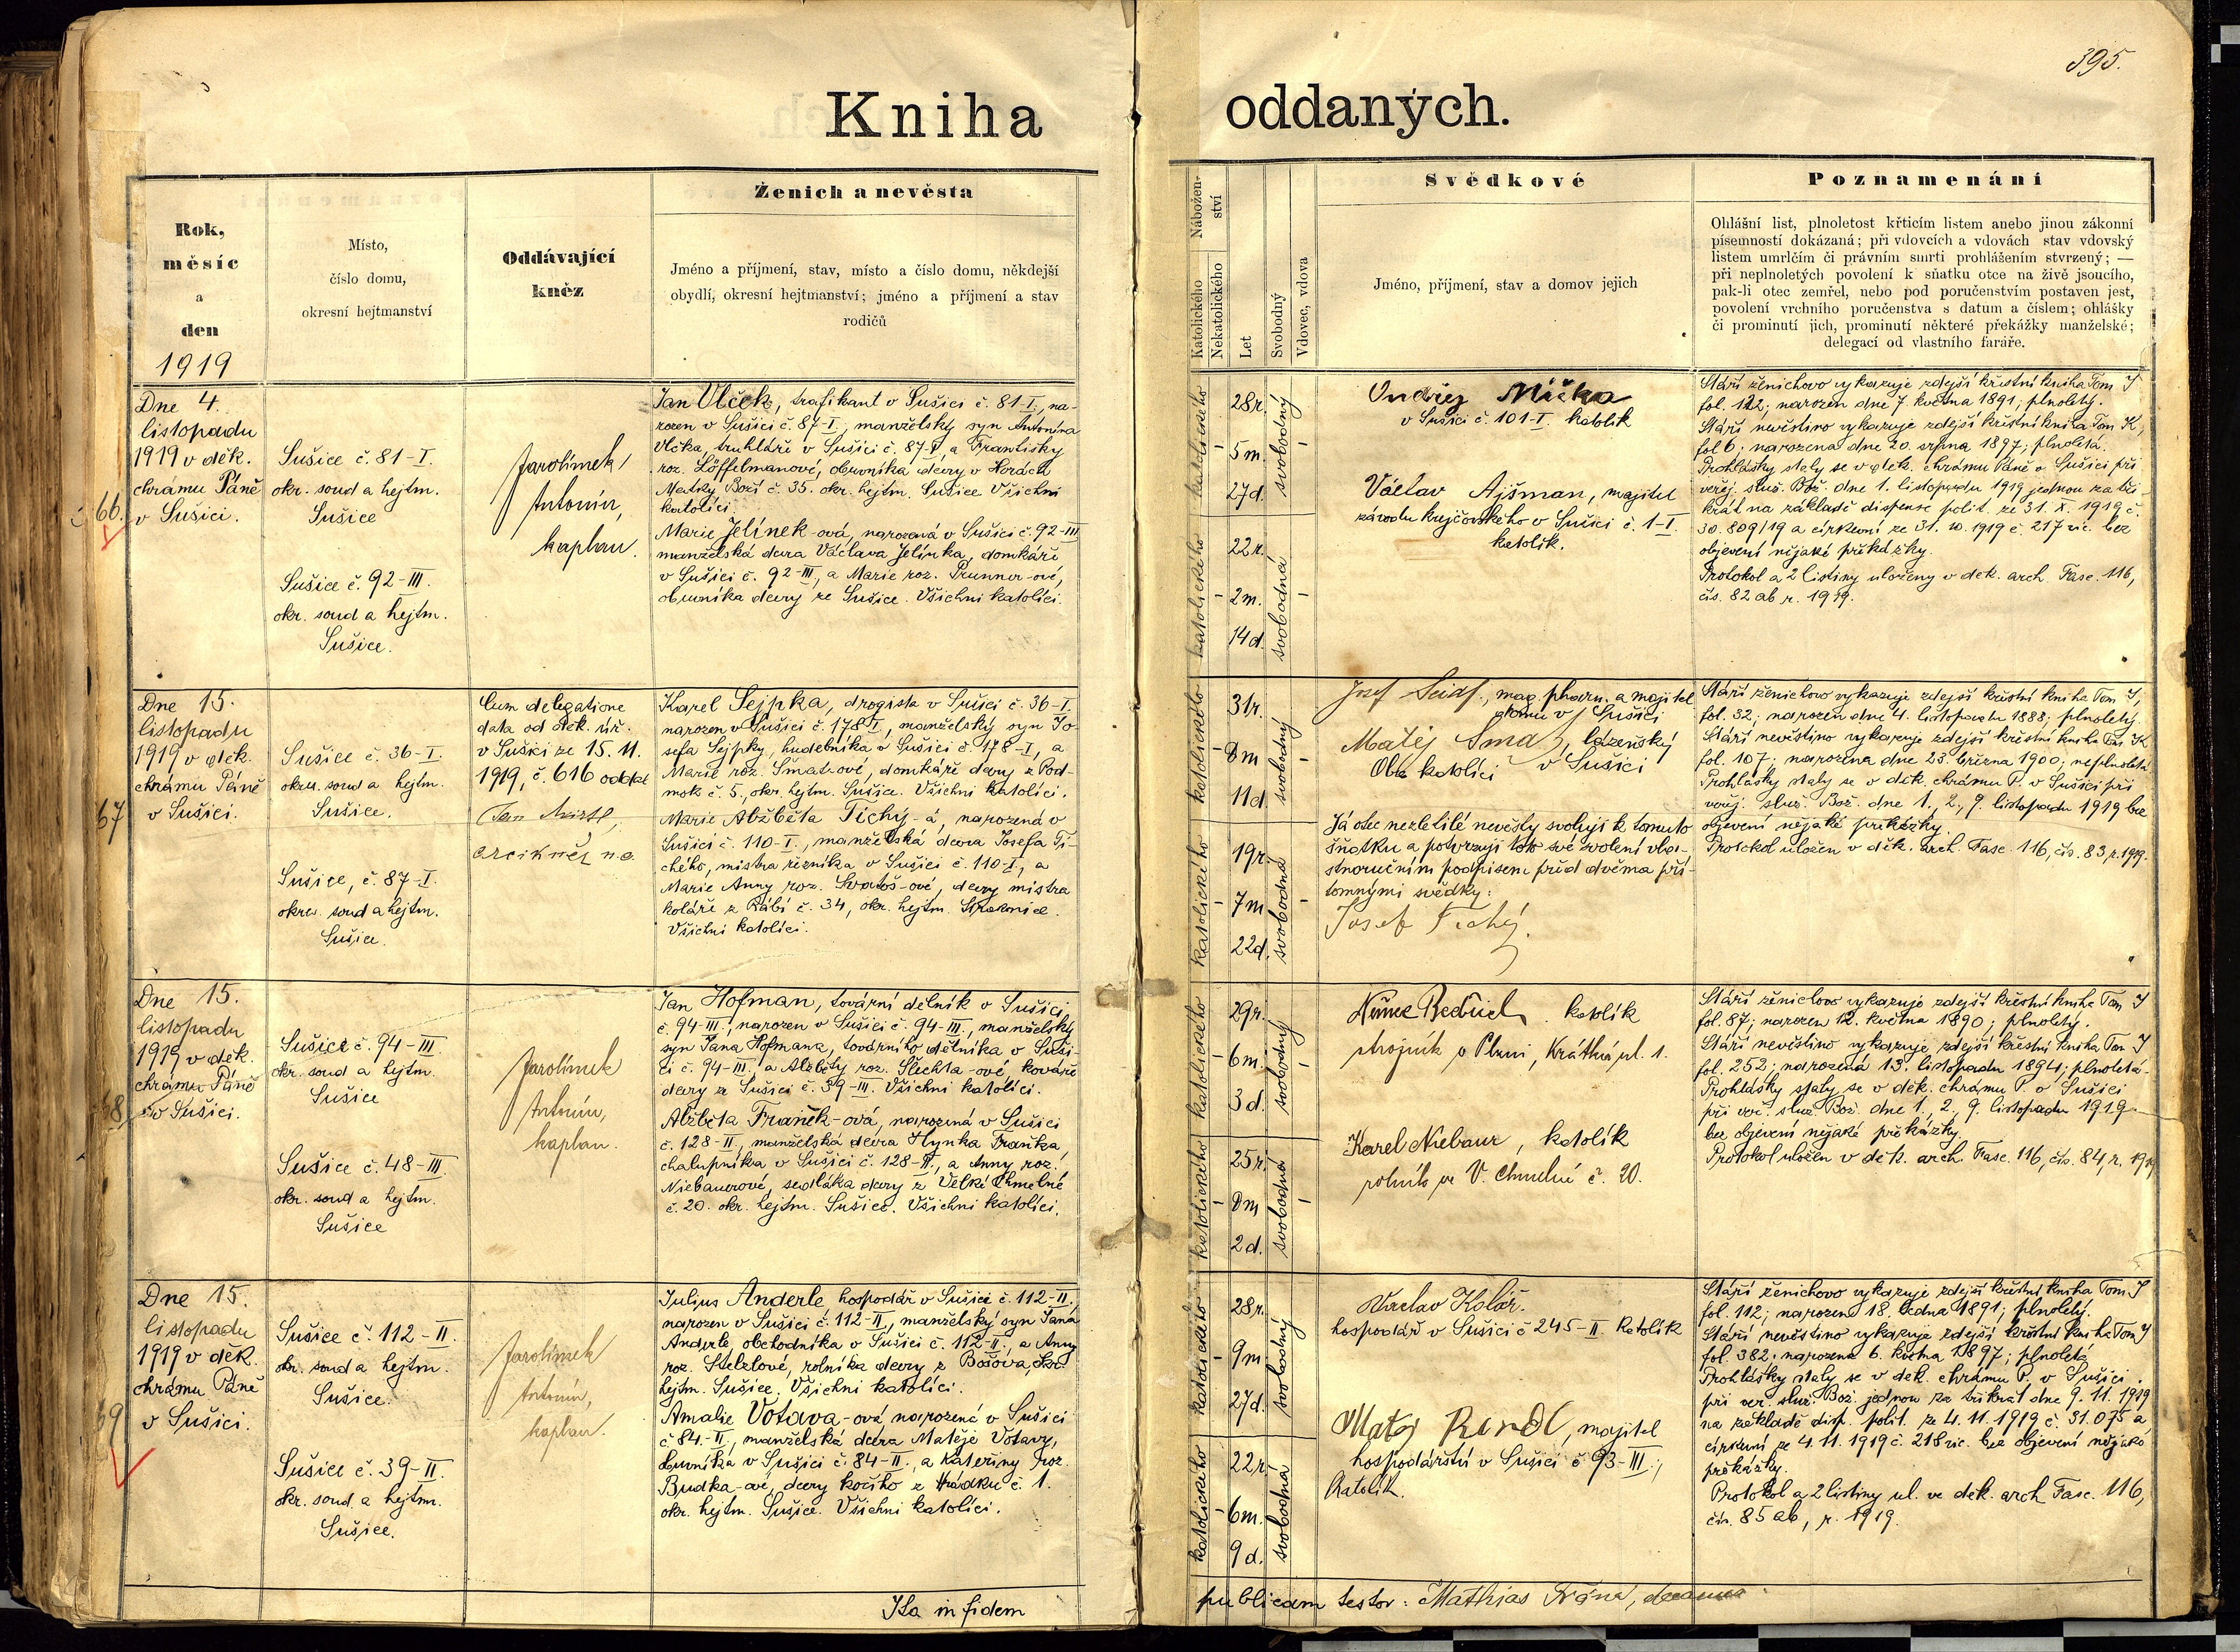 395.
Kniha oddaných.
Rok,
měsíc
a
den
1919
Místo,
číslo domu,
okresní hejtmanství
Oddávající
kněz
Ženich a nevěsta
Jméno a příjmení, stav, místo a číslo domu, někdejší
obydlí, okresní hejtmanství; jméno a příjmení a stav
rodičů
Nábožen-
ství
Katolického
Nekatolického
Let
Svobodný
Vdovec, vdova
Svědkové
Jméno, příjmení, stav a domov jejich
Poznamenání
Ohlášní list, plnoletost křticím listem anebo jinou zákonní
písemností dokázaná; při vdovcích a vdovách stav vdovský
listem umrlčím či právním smrti prohlášením stvrzený; —
při neplnoletých povolení k sňatku otce na živě jsoucího,
pak-li otec zemřel, nebo pod poručenstvím postaven jest,
povolení vrchního poručenstva s datum a číslem; ohlášky
či prominutí jich, prominutí některé překážky manželské;
delegací od vlastního faráře.
66.
Dne 4.
listopadu
1919 v děk.
chrámu Páně
v Sušici.
Sušice č. 81-I.
okr. soud a hejtm.
Sušice
Sušice č. 92-III.
okr. soud a hejtm.
Sušice.
Jarolímek
Antonín,
kaplan.
Jan Vlček, trafikant v Sušici č. 81-I., na-
rozen v Sušici č. 87-I., manželský syn Antonína
Vlčka, truhláře v Sušici č. 87-I, a Františky
roz. Löffelmanové, obuvníka dcery v Horách
Matky Boží č. 35. okr. hejtm. Sušice Všichni
katolíci.
Marie Jelínek-ová, narozená v Sušici č. 92-III
manželská dcera Václava Jelínka, domkáře
v Sušici č. 92-III, a Marie roz. Prunner-ové,
obuvníka dcery ze Sušice. Všichni katolíci.
katolického
katolického
28r.
5m.
27d.
22r.
2m.
14d.
svobodný
svobodná
Ondřej Mička
v Sušici č. 101-I. katolík
Václav Ajšman, majitel
závodu krejčovského v Sušici č. 1-I.
katolík.
Stáří ženichovo vykazuje zdejší křestní kniha Tom J
fol. 122; narozen dne 7. května 1891; plnoletý.
Stáří nevěstino vykazuje zdejší křestní kniha Tom K,
fol 6; narozena dne 20. srpna 1897; plnoletá.
Prohlášky staly se v děk. chrámu Páně v Sušici při
veřej. služ. Bož. dne 1. listopadu 1919 jednou za tři-
krát na základě dispense polit. ze 31. X. 1919 č.
30.809/19 a církevní ze 31. 10. 1919 č. 217 vic. bez
objevení nějaké překážky.
Protokol a 2 listiny uloženy v děk. arch. Fasc. 116,
čís. 82 ab r. 1919.
67
Dne 15.
listopadu
1919 v děk.
chrámu Páně
v Sušici.
Sušice č. 36-I.
okres. soud a hejtm.
Sušice.
Sušice, č. 87-I.
okres. soud a hejtm.
Sušice.
Cum delegatione
data od děk. úř.
v Sušici ze 15. 11.
1919, č. 616
Jan
arcikněz
Karel Sejpka, drogista v Sušici č. 36-I.
narozen v Sušici č. 178 I, manželský syn Jo-
sefa Sejpky, hudebníka v Sušici č. 178-I, a
Marie roz. Šmatrové, domkáře dcery z Pod-
mok č. 5., okr. hejtm. Sušice. Všichni katolíci.
Marie Alžběta Tichý-á, narozená v
Sušici č. 110-I., manželská dcera Josefa Ti-
chého, mistra řezníka v Sušici č. 110-I, a
Marie Anny roz. Svatoš-ové, dcery mistra
koláře z Rábí č. 34, okr. hejtm. Strakonice.
Všichni katolíci.
katolického
katolického
31r.
0m
11d.
19r.
7m
22d.
svobodný
svobodná
Josef Seidl, mag. pharm. a majitel
domu v Sušici
Matěj, lázeňský
Oba katolíci v Sušici
Já otec nezletilé nevěsty svoluji k tomuto
sňatku a potvrzuji toto své svolení vlast-
stnoručním podpisem před dvěma pří-
tomnými svědky:
Josef Tichý.
Stáří ženichovo vykazuje zdejší křestní kniha Tom J,
fol. 32; narozen dne 4. listopadu 1888; plnoletý.
Stáří nevěstino vykazuje zdejší křestní kniha Tom K
fol. 107; narozena dne 23. března 1900; neplnoletá
Prohlášky staly se v děk. chrámu P. v Sušici při
veřej. služ. Bož. dne 1., 2., 9. listopadu 1919 bez
objevení nějaké překážky.
Protokol uložen v děk. arch. Fasc. 116, čís. 83, r. 1919.
68
Dne 15.
listopadu
1919 v děk.
chrámu Páně
v Sušici.
Sušice č. 94-III.
okr. soud a hejtm.
Sušice
Sušice č. 48-III.
okr. soud a hejtm.
Sušice
Jarolímek
Antonín,
kaplan.
Jan Hofman, tovární dělník v Sušici
č. 94-III., narozen v Sušici č. 94-III., manželský
syn Jana Hofmana, továrního dělníka v Suši-
ci č. 94-III., a Alžběty roz. Šlechta-ové, kováře
dcery z Sušici č. 59-III. Všichni katolíci.
Alžběta Franěk-ová, narozená v Sušici
č. 128-II, manželská dcera Hynka Fraňka,
chalupníka v Sušici č. 128-II., a Anny roz.
Niebauerové, sedláka dcery z Velké Chmelné
č. 20. okr. hejtm. Sušice. Všichni katolíci.
katolického
katolického
29r.
6m.
3d.
25r.
0m
2d.
svobodný
svobodná
Bedřich. katolík
strojník v Plzni, Krátká ul. 1.
Karel Niebaur, katolík
rolník ve V. Chmelné č. 20.
Stáří ženichovo vykazuje zdejší křestní kniha Tom J
fol. 87; narozen 12. května 1890; plnoletý.
Stáří nevěstino vykazuje zdejší křestní kniha Tom J
fol. 252; narozená 13. listopadu 1894; plnoletá.
Prohlášky staly se v děk. chrámu P. v Sušici
při veř. služ. Bož. dne 1., 2., 9. listopadu 1919
bez objevení nějaké překážky.
Protokol uložen v děk. arch. Fasc. 116, čís. 84, r. 1919
69
Dne 15.
listopadu
1919 v děk.
chrámu Páně
v Sušici.
Sušice č. 112-II.
okr. soud a hejtm.
Sušice.
Sušice č. 39-II.
okr. soud a hejtm.
Sušice.
Jarolímek
Antonín,
kaplan.
Julius Anderle hospodář v Sušici č. 112-II,
narozen v Sušici č. 112-II, manželský syn Jana
Anderle, obchodníka v Sušici č. 112-II., a Anny
roz. Stelzlové, rolníka dcery z Bošova, okr.
hejtm. Sušice. Všichni katolíci.
Amalie Votava-ová, narozená v Sušici
č. 84-II, manželská dcera Matěje Votavy,
obuvníka v Sušici č. 84-II., a Kateřiny roz.
Budka-ové, dcery kočího z Hrádku č. 1.
okr. hejtm. Sušice. Všichni katolíci.
katolického
katolického
28r.
9m.
27d.
22r.
6m.
9d.
svobodný
svobodná
Václav Kolář.
hospodář v Sušici č 245-II. katolík
Matěj Rendl, majitel
hospodářství v Sušici č 93-III.,
katolík.
Stáří ženichovo vykazuje zdejší křestní kniha Tom J
fol. 112; narozen 18. ledna 1891; plnoletý.
Stáří nevěstino vykazuje zdejší křestní kniha Tom J
fol. 382. narozena 6. května 1897; plnoletá
Prohlášky staly se v děk. chrámu P. v Sušici.
při veř. služ. Bož. jednou za třikrát dne 9. 11. 1919
na základě disp. polit. ze 4. 11. 1919 č. 31.075 a
církevní ze 4. 11. 1919 č. 218 vic. bez objevení nějaké
překážky.
Protokol a 2 listiny ul. ve děk. arch Fasc. 116,
čís. 85 ab, r. 1919.
Ita in fidem publicam testor: Mathias